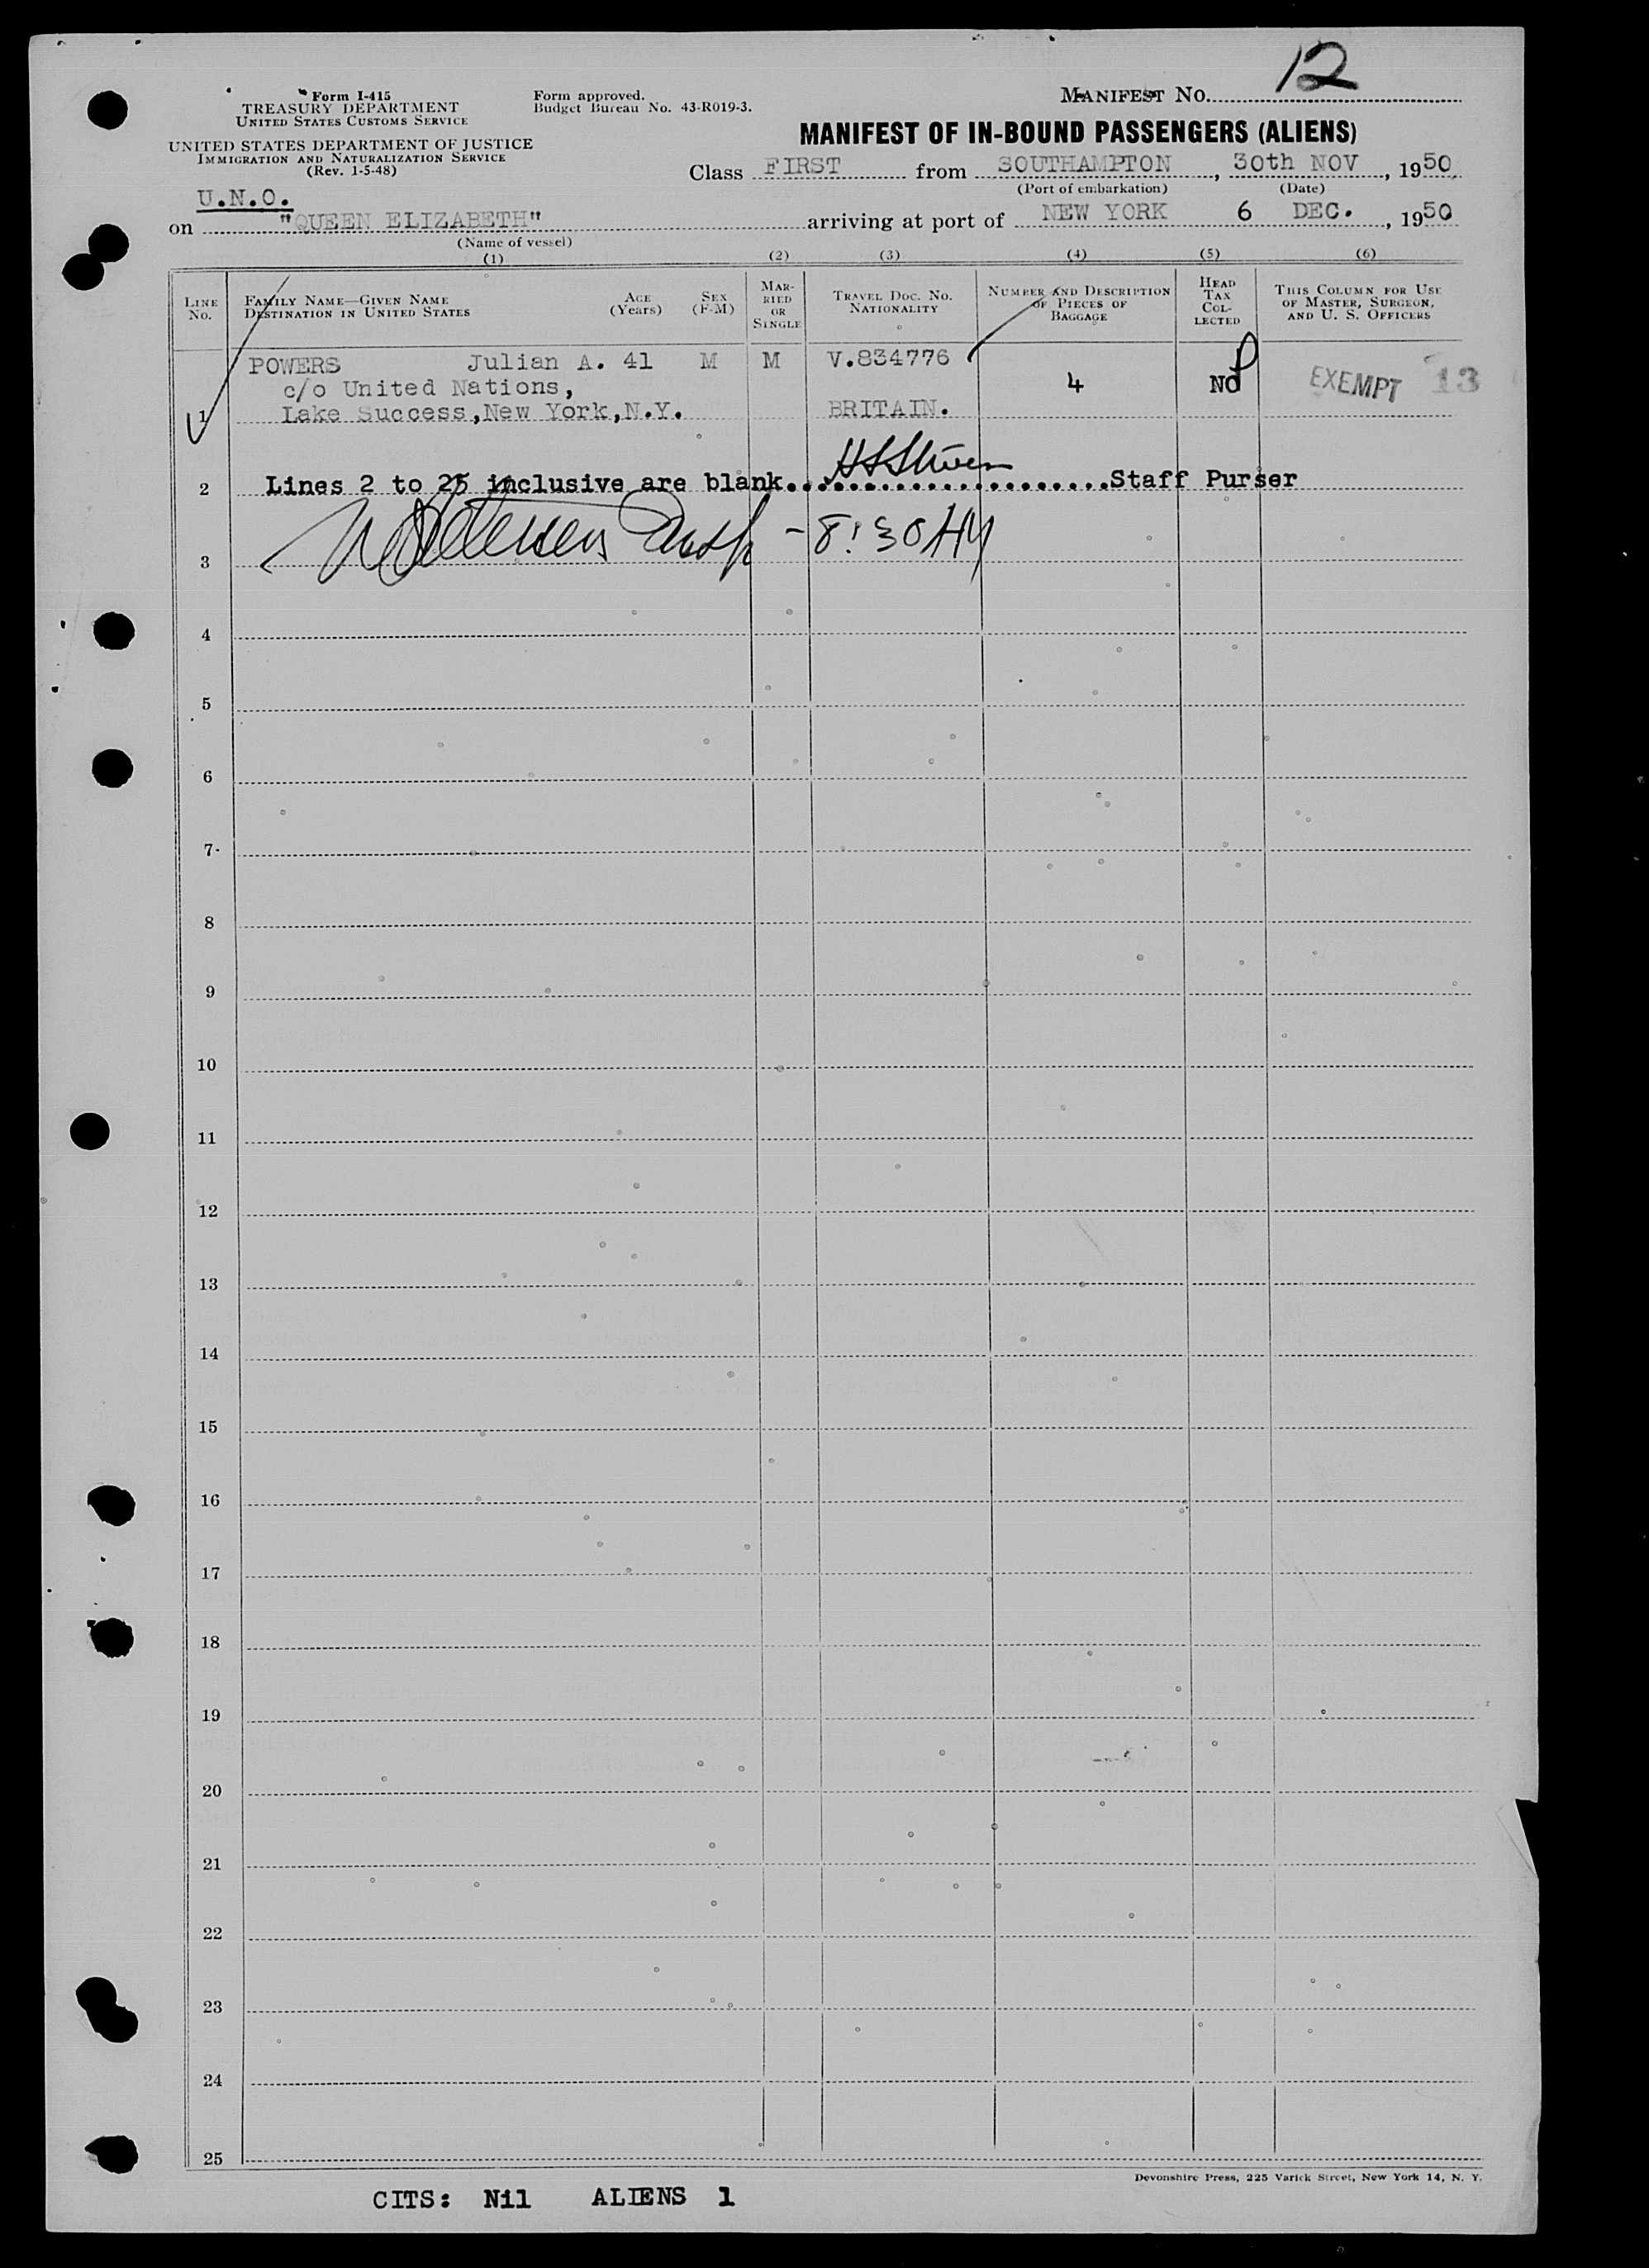 Form I-415
TREASURY DEPARTMENT
UNITED STATES CUSTOMS SERVICE
UNITED STATES DEPARTMENT OF JUSTICE
IMMIGRATION AND NATURALIZATION SERVICE
(Rev. 1-5-48)
Form approved.
Budget Bureau No. 43-R019-3.
MANIFEST No. 12
MANIFEST OF IN-BOUND PASSENGERS (ALIENS)
Class FIRST from SOUTHAMPTON, 30th NOV, 1950
(Port of embarkation) (Date)
U.N.O.
on "QUEEN ELIZABETH" arriving at port of NEW YORK 6 DEC., 1950
(Name of vessel)
(1) (2) (3) (4) (5) (6)
LINE No. FAMILY NAME—GIVEN NAME DESTINATION IN UNITED STATES AGE (Years) SEX (F-M) MARRIED OR SINGLE TRAVEL DOC. NO. NATIONALITY NUMBER AND DESCRIPTION OF PIECES OF BAGGAGE HEAD TAX COLLECTED THIS COLUMN FOR USE OF MASTER, SURGEON, AND U. S. OFFICERS
POWERS Julian A. 41 M M V.834776
c/o United Nations, 4 NO EXEMPT 13
1 Lake Success, New York, N.Y. BRITAIN.
2 Lines 2 to 25 inclusive are blank......................Staff Purser
3 - 8:30
4
5
6
7
8
9
10
11
12
13
14
15
16
17
18
19
20
21
22
23
24
25
Devonshire Press, 225 Varick Street, New York 14, N. Y.
CITS: Nil ALIENS 1